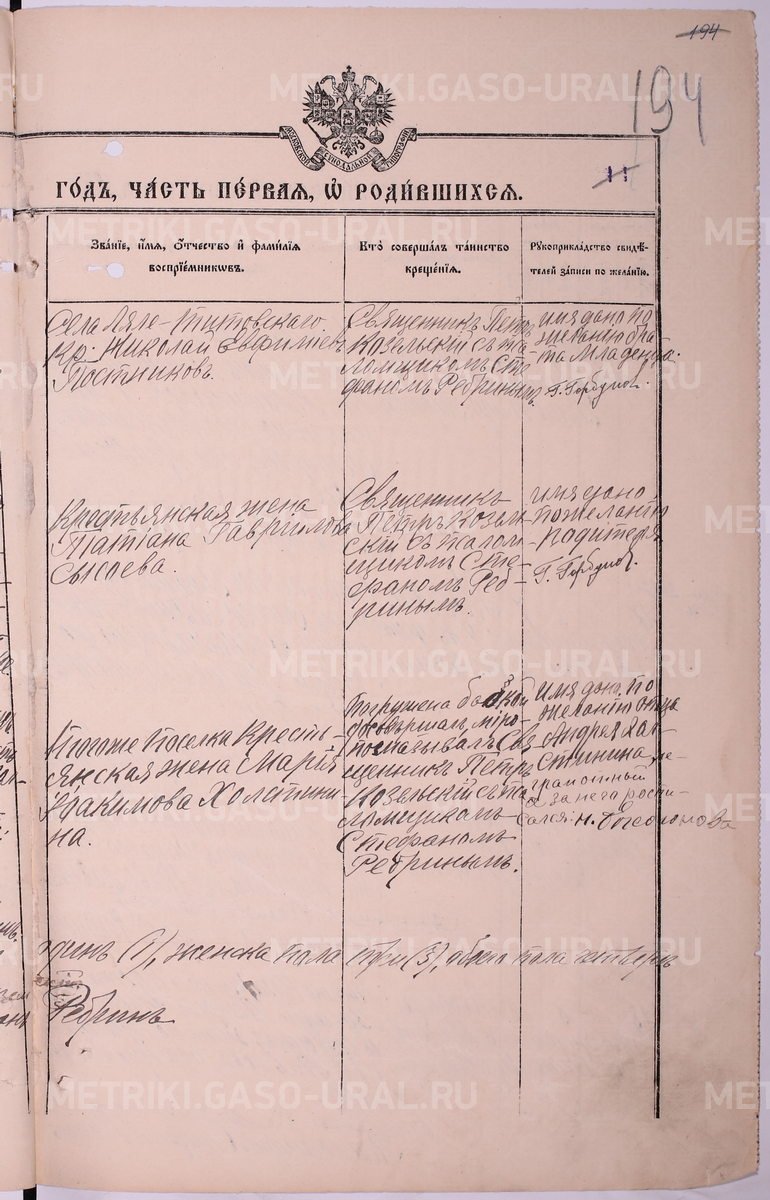 194
194
11
МОСКОВСКОЙ СѴНОДАЛЬНОЙ ТИПОГРАФІИ
го́дъ, ча́сть пе́рваѧ, ѡ҆ роди́вшихсѧ.
Зва́нїе, и҆́мѧ, ѻ҆́тчество и҆ фамилїѧ
воспрїе́мникѡвъ.
Кто̀ соверша́лъ та́инство
креще́нїѧ.
Рꙋкоприкла́дство свидѣ́-
телей за́писи по жела́нїю.
Села Ляле-Титовскаго
кр. Николай Евфимiевъ
Постниковъ.
Священникъ Петръ
Козельскій съ пса-
ломщикомъ Сте
фаномъ Ребринымъ.
имя дано по
желанію бра-
та младенца.
Г. Горбунов.
Крестьянская жена
Татіана Гаврилова
Сысоева.
Священникъ
Петръ Козель
скій съ псалом
щикомъ Сте-
фаномъ Реб-
ринымъ.
имя дано
по желанію
родителя
Г. Горбунов.
Тогоже поселка кресть-
янская жена Марія
Іоакимова Холстини-
на.
Погружена бабкой
совершалъ миро-
помазывалъ Свя
щенникъ Петръ
Козельскій съ пса
ломщикомъ
Стефаномъ
Ребринымъ.
имя дано по
желанію отца
Андрея Хол-
стинина, не-
грамотный
а за него роспи-
сался: Н.
одинъ (1), женска пола три (3), обоего пола четверо
Ребринъ
METRIKI.GASO-URAL.RU